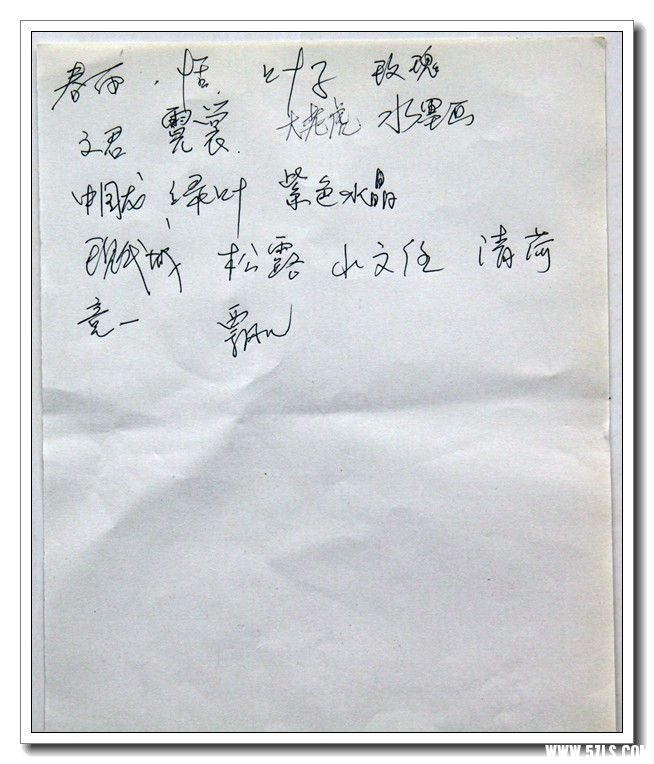 春雨 . 恬 叶子 玫瑰
文君 霓裳 大老虎 水墨画
中国龙 绿叶 紫色水晶
现代城 松露 山文任 清荷
竞一 飘
WWW.57LS.COM